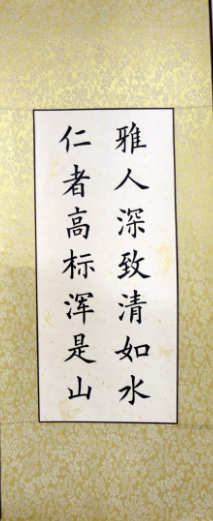 雅人深致清如水
仁者高标浑是山